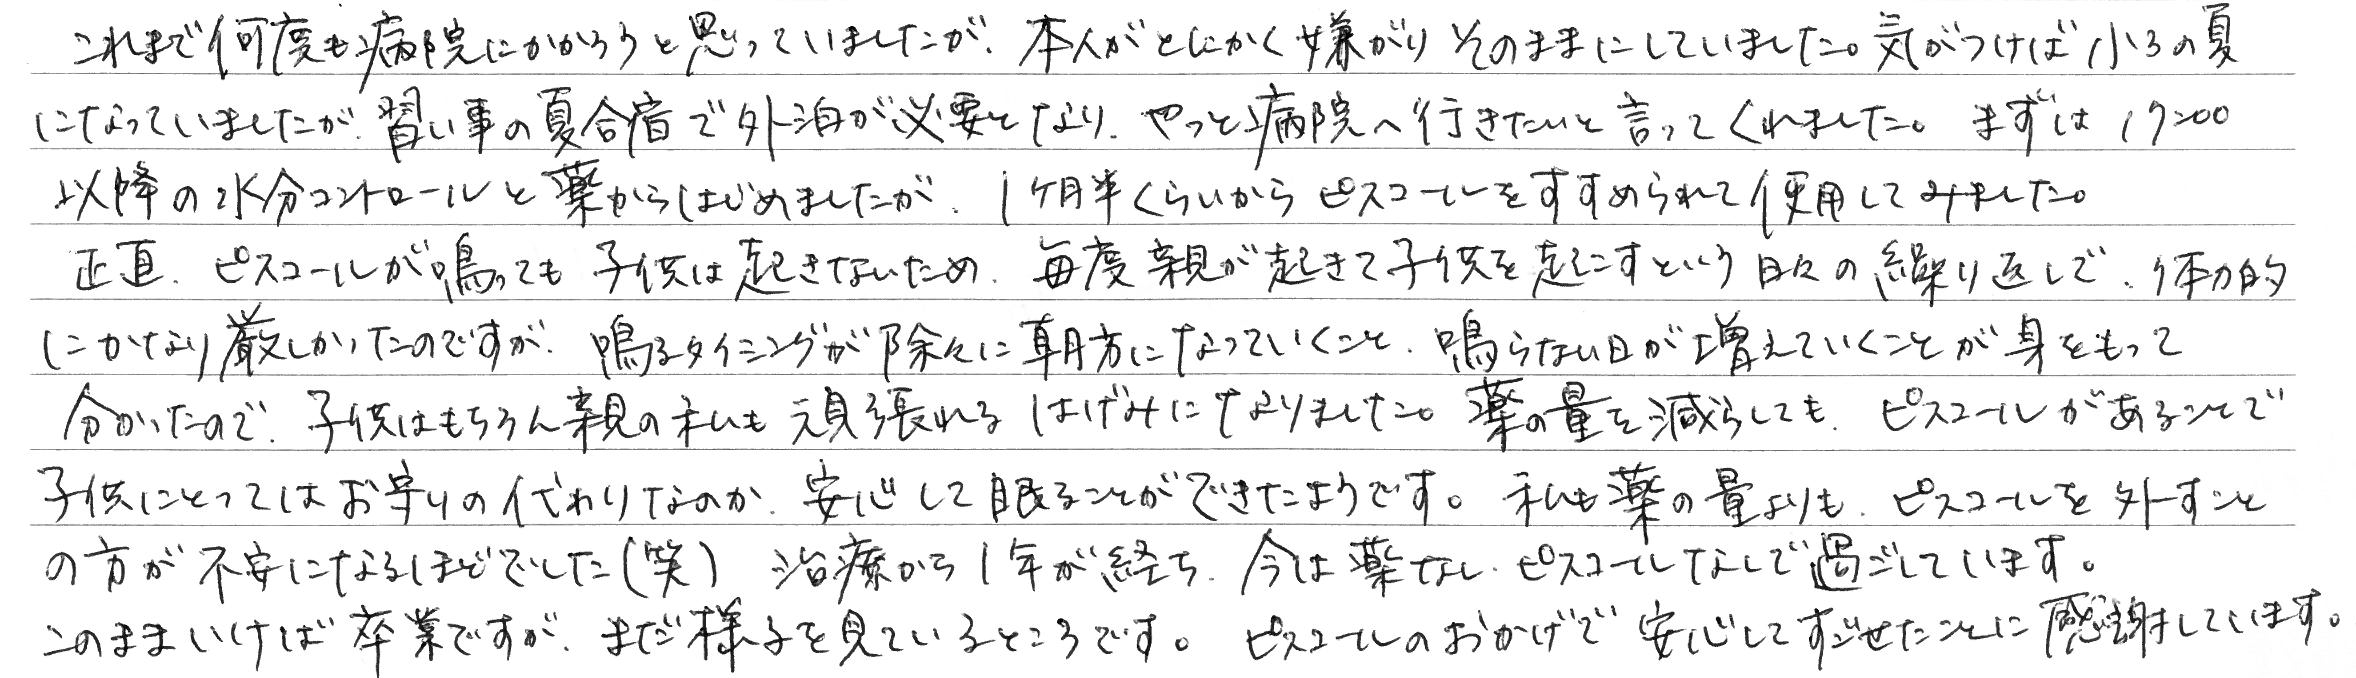 これまで何度も病院にかかろうと思っていましたが、本人がとにかく嫌がりそのままにしていました。気がつけば小3の夏
になっていましたが、習い事の夏合宿で外泊が必要となり、やっと病院へ行きたいと言ってくれました。まずは17:00
以降の水分コントロールと薬からはじめましたが、1ヶ月半くらいからピスコールをすすめられて使用してみました。
正直、ピスコールが鳴っても子供は起きないため、毎度親が起きて子供を起こすという日々の繰り返しで、体力的
にかなり厳しかったのですが、鳴るタイミングが除々に朝方になっていくこと、鳴らない日が増えていくことが身をもって
分かったので、子供はもちろん親の私も頑張れるはげみになりました。薬の量を減らしても、ピスコールがあることで
子供にとってはお守りの代わりなのか、安心して眠ることができたようです。私も薬の量よりも、ピスコールを外すこと
の方が不安になるほどでした(笑) 治療から1年が経ち、今は薬なし、ピスコールなしで過ごしています。
このままいけば卒業ですが、まだ様子を見ているところです。ピスコールのおかげで安心してすごせたことに感謝しています。